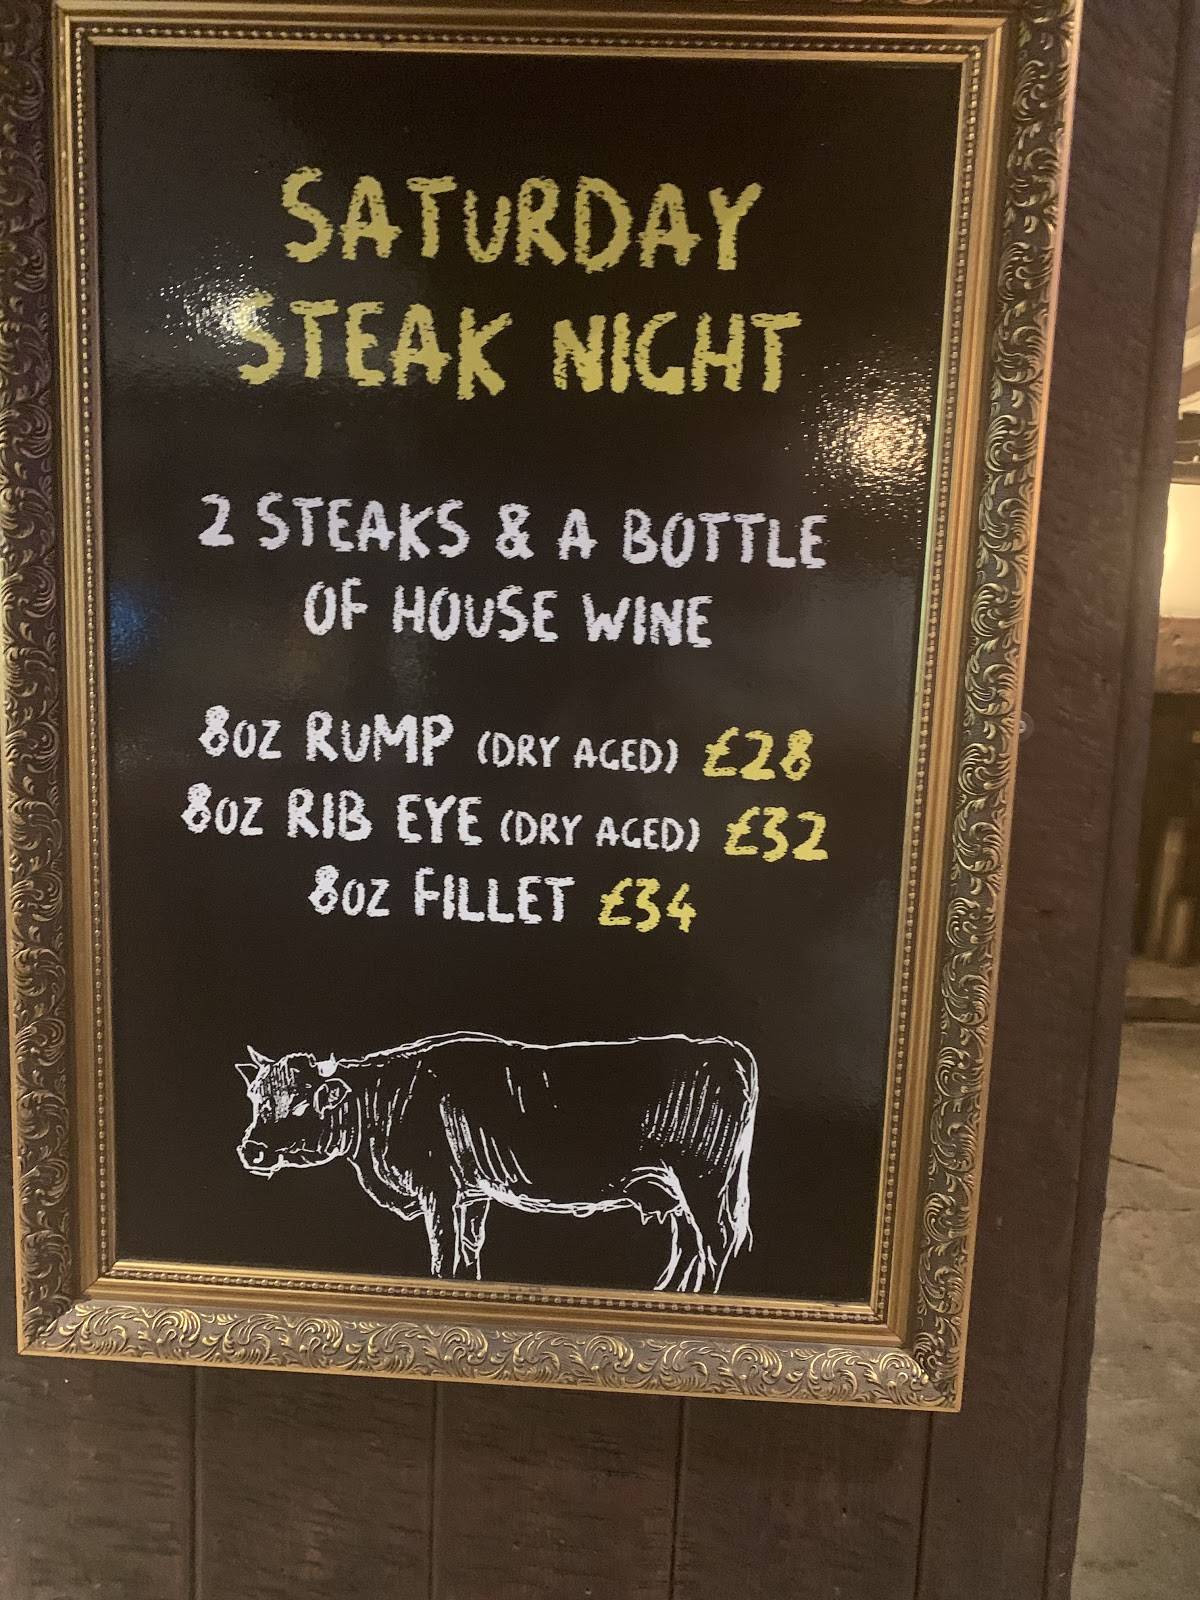 SATURDAY
STEAK NIGHT
2 STEAKS & A BOTTLE
OF HOUSE WINE
8OZ RUMP (DRY AGED) £28
8OZ RIB EYE (DRY AGED) £32
8OZ FILLET £34